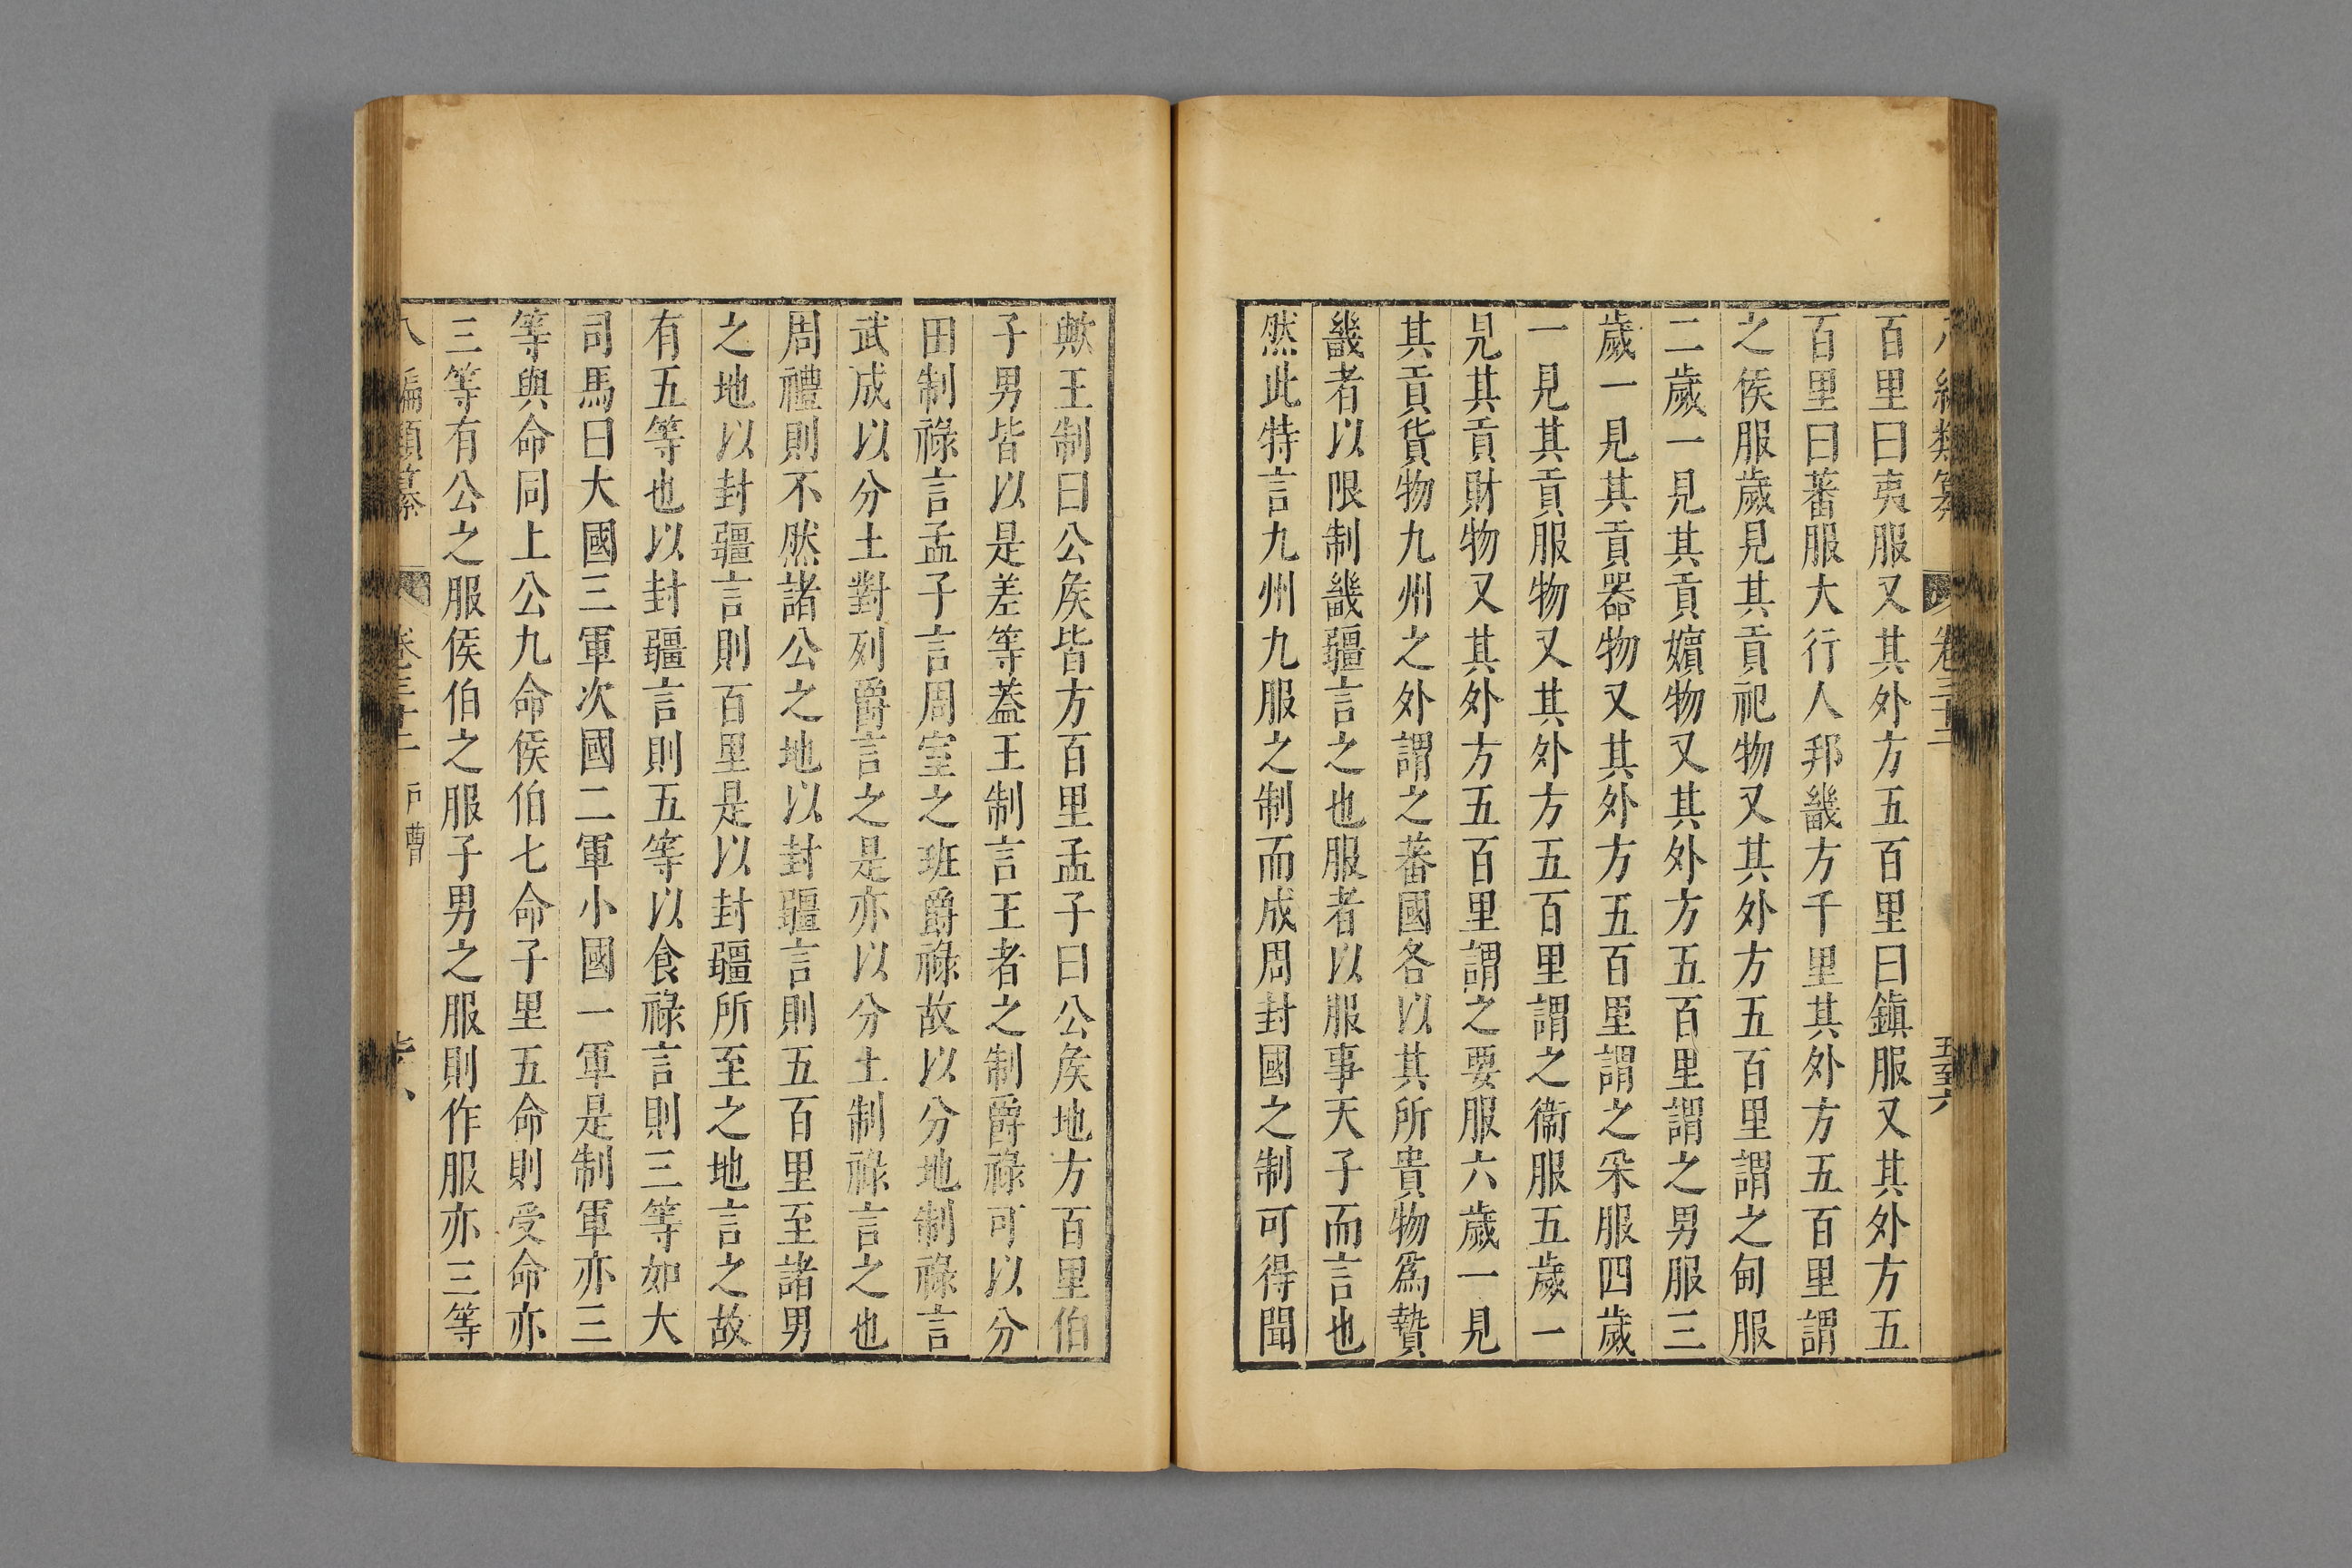 百里曰夷服又其外方五百里曰鎮服又其外方五
百里曰蕃服大行人邦畿方千里其外方五百里謂
之侯服歲見其貢祀物又其外方五百里謂之甸服
二歲一見其貢嬪物又其外方五百里謂之男服三
歲一見其貢器物又其外方五百里謂之采服四歲
一見其貢服物又其外方五百里謂之衞服五歲一
見其貢財物又其外方五百里謂之要服六歲一見
其貢貨物九州之外謂之蕃國各以其所貴物爲贄
畿者以限制畿疆言之也服者以服事天子而言也
然此特言九州九服之制而成周封國之制可得聞
歟王制曰公矦皆方百里孟子曰公矦地方百里伯
子男皆以是差等葢王制言王者之制爵祿可以分
田制祿言孟子言周室之班爵祿故以分地制祿言
武成以分土對列爵言之是亦以分土制祿言之也
周禮則不然諸公之地以封疆言則五百里至諸男
之地以封疆言則百里是以封疆所至之地言之故
有五等也以封疆言則五等以食祿言則三等如大
司馬曰大國三軍次國二軍小國一軍是制軍亦三
等與命同上公九命侯伯七命子里五命則受命亦
三等有公之服侯伯之服子男之服則作服亦三等
八編類纂 卷三十二 戶曹